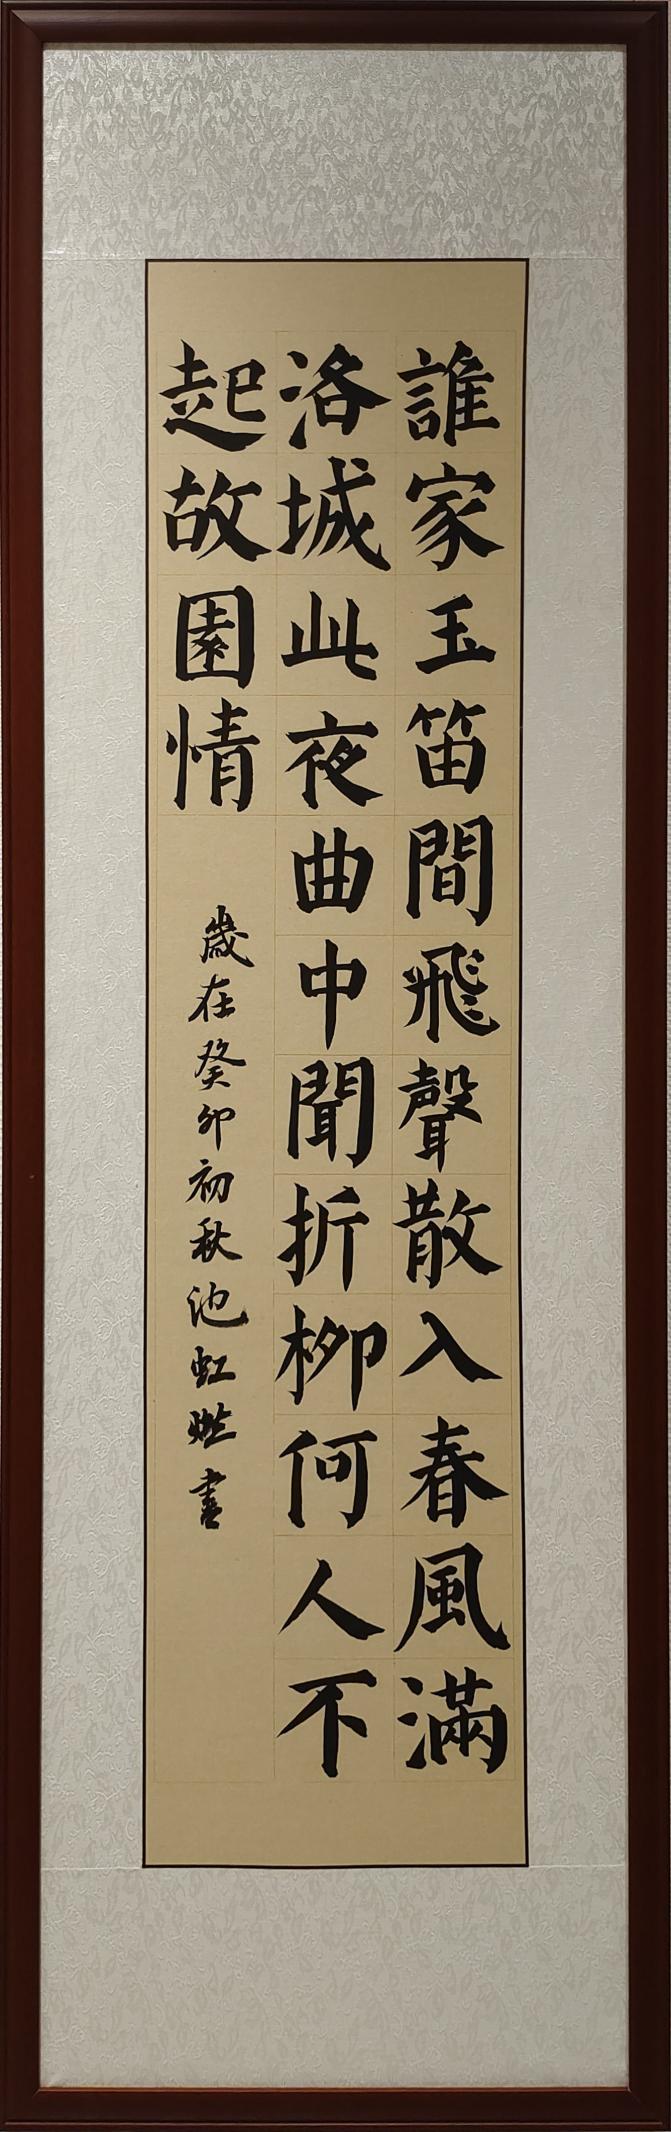 誰家玉笛間飛聲散入春風滿
洛城此夜曲中聞折柳何人不
起故園情
歲在癸卯初秋池虹燃書